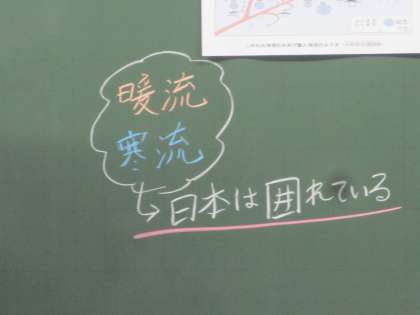 暖流
寒流
日本は囲れている